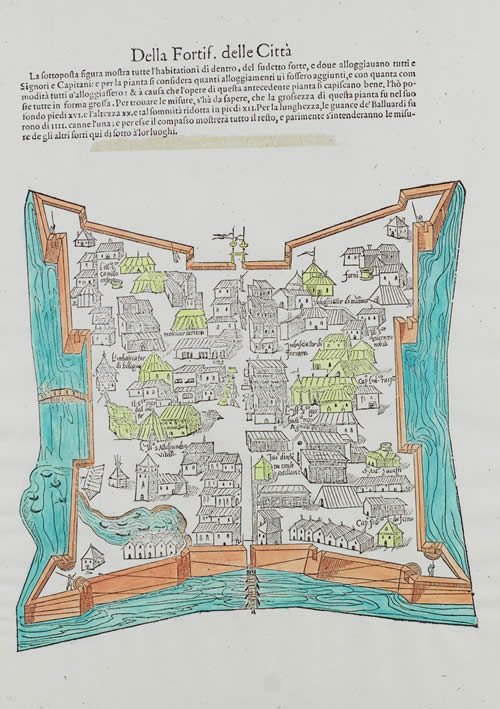 Della Fortif. delle Città
La sottoposta figura mostra tutte l'habitationi di dentro, del sudetto forte, e doue alloggiauano tutti e
Signori e Capitani: e per la pianta si considera quanti alloggiamenti ui fossero aggiunti, e con quanta com
modità tutti u'alloggiassero: & à causa che l'opere di questa antecedente pianta si capiscano bene, l'hò po-
ste tutte in forma grossa. Per trouare le misure, s'hà da sapere, che la grossezza di questa pianta fu nel suo
fondo piedi XVI. e l'altezza XX. e tal somnità ridotta in piedi XII. Per la lunghezza, le guance de' Balluardi fu
rono di IIII. canne l'una; e per esse il compasso mostrerà tutto il resto, e parimente s'intenderanno le misu-
re de gli altri forti qui di sotto à lor luoghi.
forni
Imbasciator di mātoua
Imbasciator di
ferrara
Imbasciator
di bologna